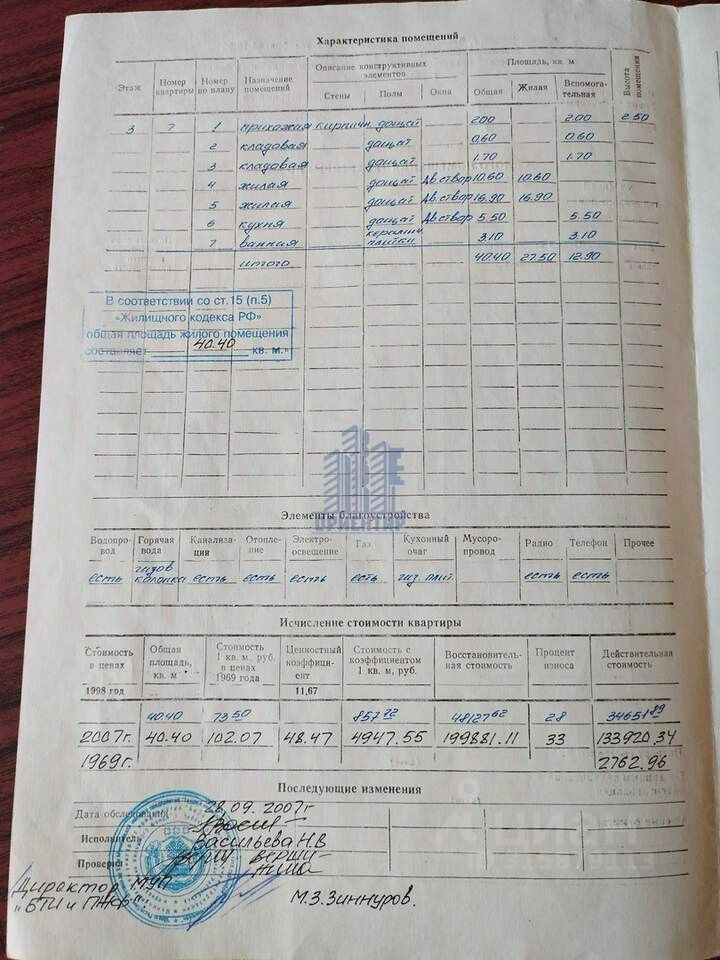 Характеристика помещений
Этаж Номер квартиры Номер по плану Назначение помещений Описание конструктивных элементов Площадь, кв. м Высота помещения
Стены Полы Окна Общая Жилая Вспомогательная
3 7 1 прихожая кирпичн дощат 2.00 2.00 2.50
2 кладовая дощат 0.60 0.60
3 кладовая дощат 1.70 1.70
4 жилая дощат Дв.створ 10.60 10.60
5 жилая дощат Дв.створ 16.90 16.90
6 кухня дощат Дв.створ 5.50 5.50
7 ванная керамич плитки 3.10 3.10
итого 40.40 27.50 12.90
В соответствии со ст.15 (п.5)
«Жилищного кодекса РФ»
общая площадь жилого помещения
составляет 40.40 кв. м.»
ОРИЕНТИР
Элементы благоустройства
Водопро-вод Горячая вода Канализа-ция Отопле-ние Электро-освещение Газ Кухонный очаг Мусоро-провод Радио Телефон Прочее
есть газов колонка есть есть есть есть газ. плит. есть есть
Исчисление стоимости квартиры
Стоимость в ценах Общая площадь, кв. м Стоимость 1 кв. м, руб. в ценах 1969 года Ценностный коэффици-ент Стоимость с коэффициентом 1 кв. м, руб. Восстановитель-ная стоимость Процент износа Действительная стоимость
1998 год 11,67
40.40 73.50 857 72 48127 62 28 34651 89
2007г. 40.40 102.07 48.47 4947.55 199881.11 33 133920.34
1969г. 2762.96
Последующие изменения
Дата обследования 28.09.2007г
Исполнитель Васильева Н.В
Проверил
Директор МУП
"БТИ и ПЖФ".
М.З.Зиннуров.
Циан